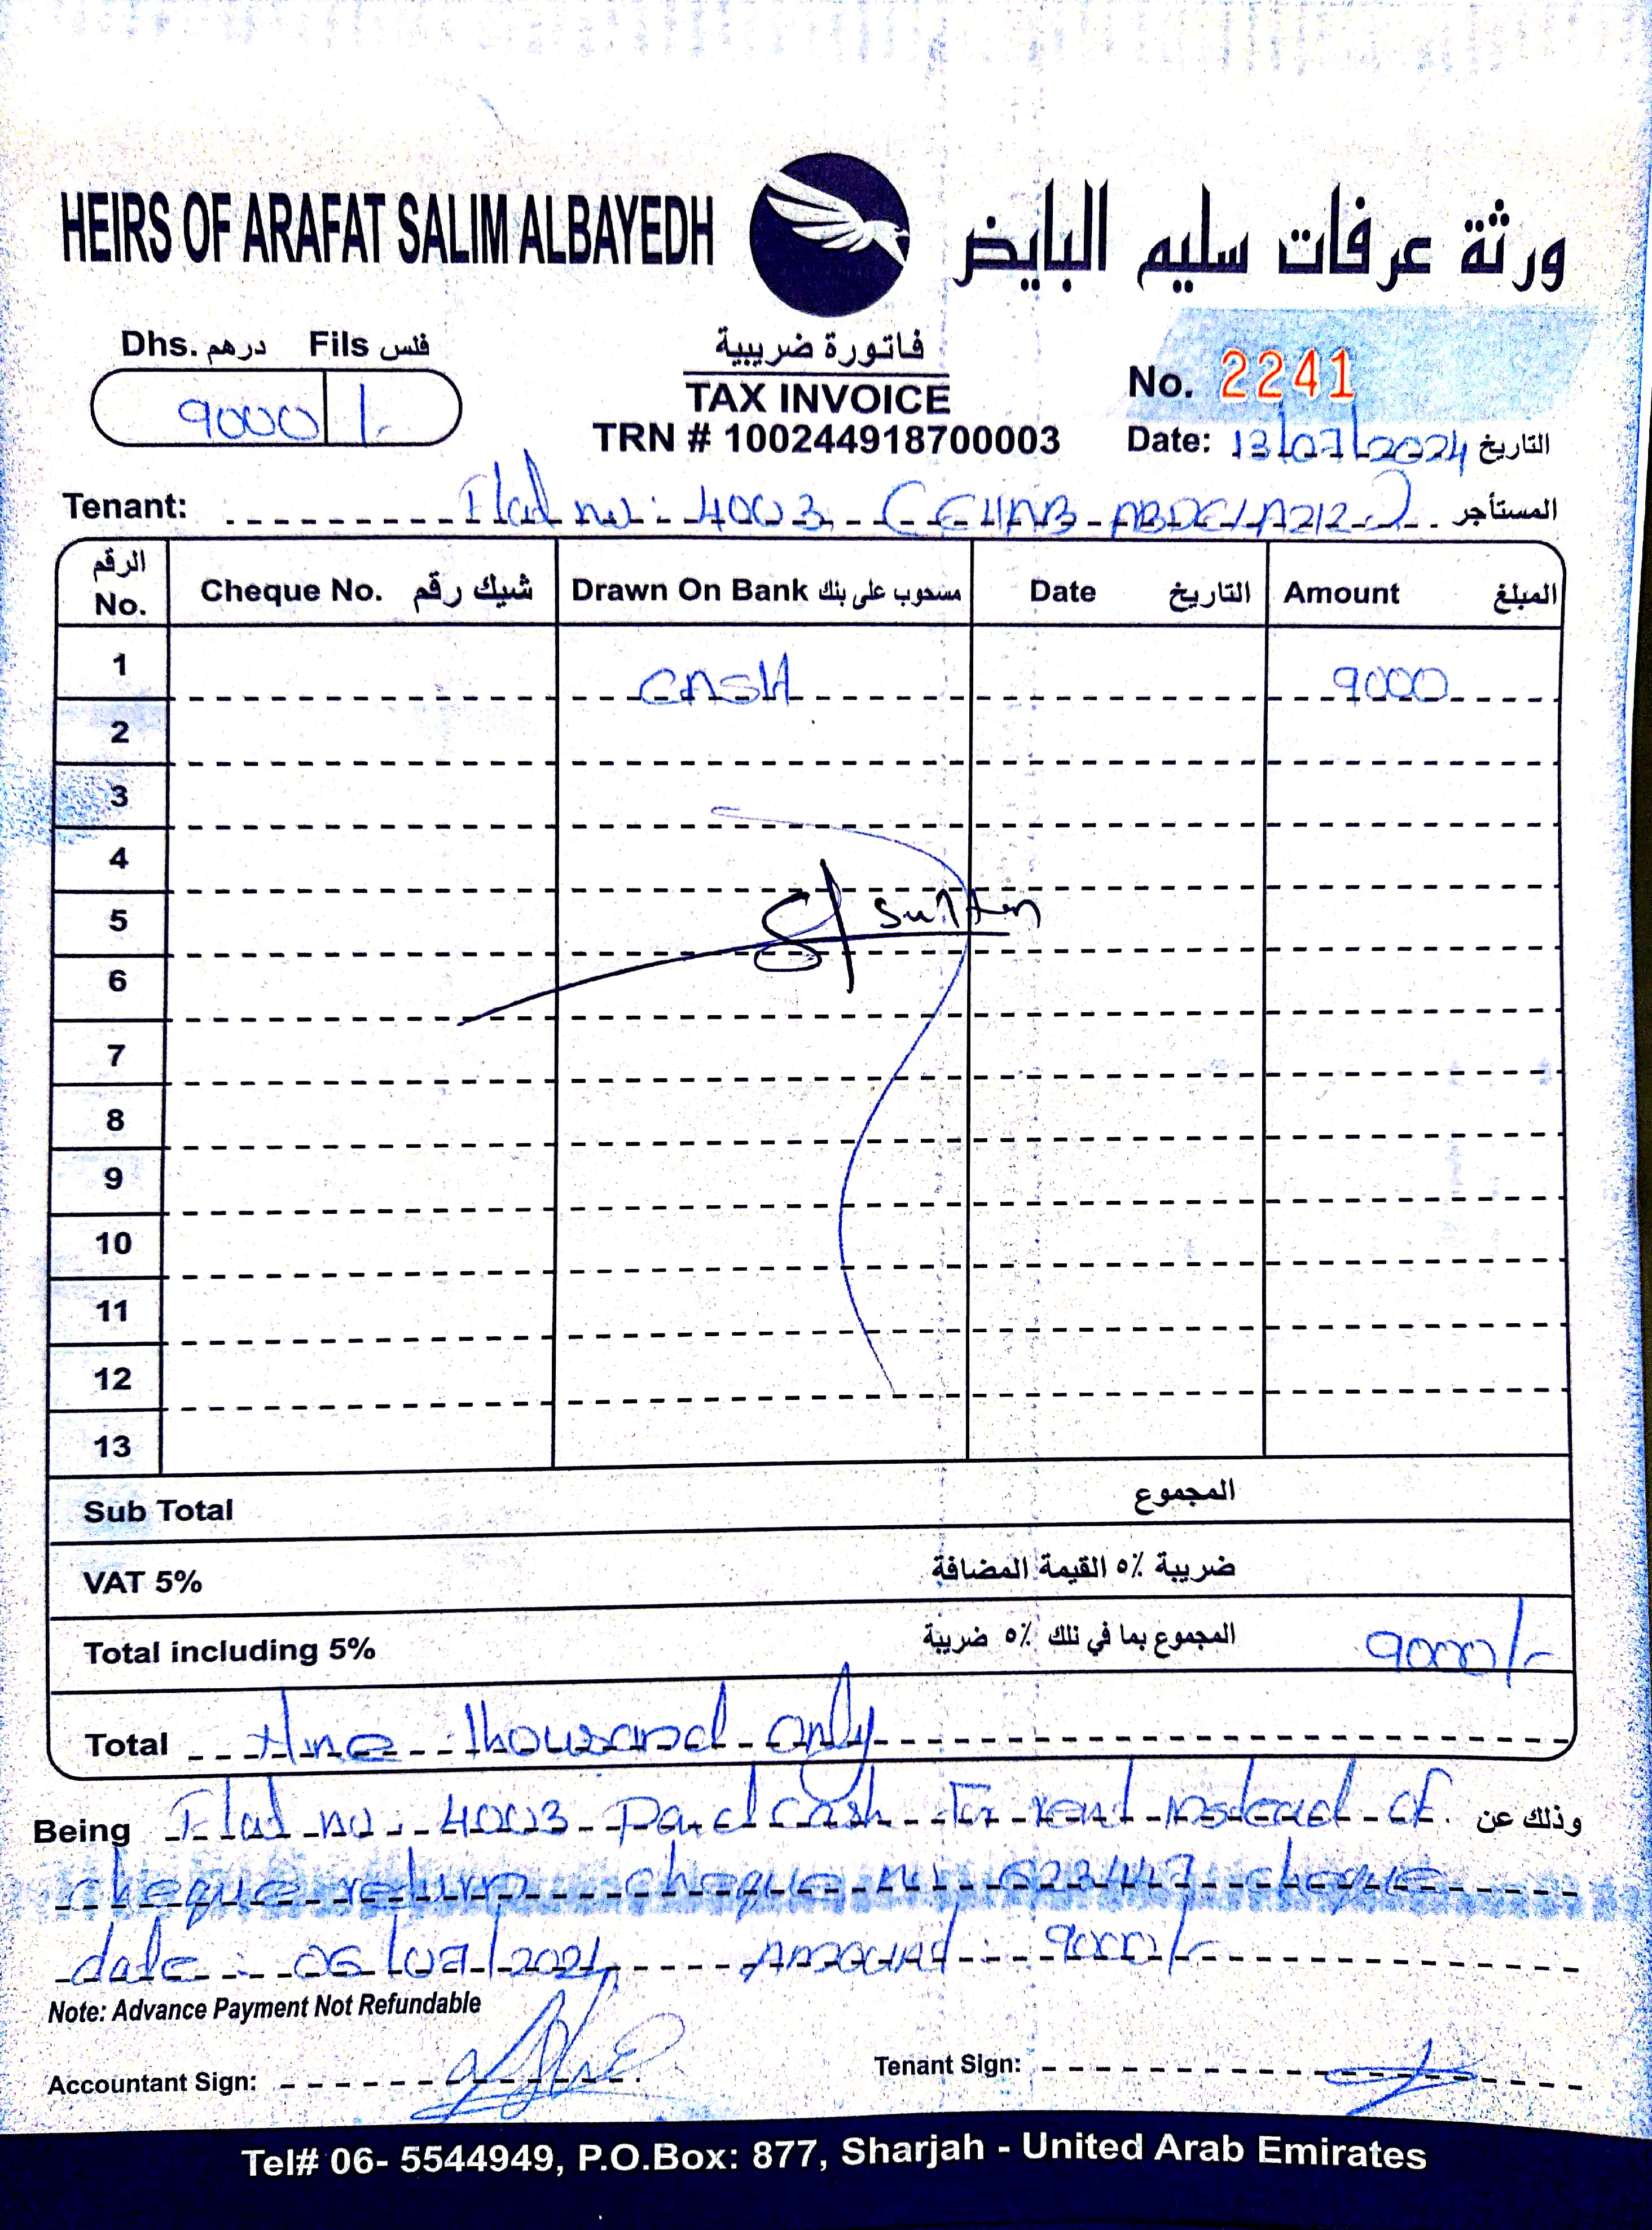 HEIRS OF ARAFAT SALIM ALBAYEDH
ورثة عرفات سليم البايض
Dhs. درهم Fils فلس
9000 /-
فاتورة ضريبية
TAX INVOICE
TRN # 100244918700003
No. 2241
Date: 13/07/2024 التاريخ
Tenant: Flat no: 4003 المستأجر
الرقم No. Cheque No. شيك رقم Drawn On Bank مسحوب على بنك Date التاريخ Amount المبلغ
1 CASH 9000
2
3
4
5 Sultan
6
7
8
9
10
11
12
13
Sub Total المجموع
VAT 5% ضريبة ٥٪ القيمة المضافة
Total including 5% المجموع بما في ذلك ٥٪ ضريبة 9000/-
Total Nine thousand only
Being Flat no. 4003 Paid Cash For rent instead of وذلك عن
cheque return cheque no 623447 cheque
date: 06/07/2024 Amount: 9000/-
Note: Advance Payment Not Refundable
Accountant Sign: Tenant Sign:
Tel# 06- 5544949, P.O.Box: 877, Sharjah - United Arab Emirates